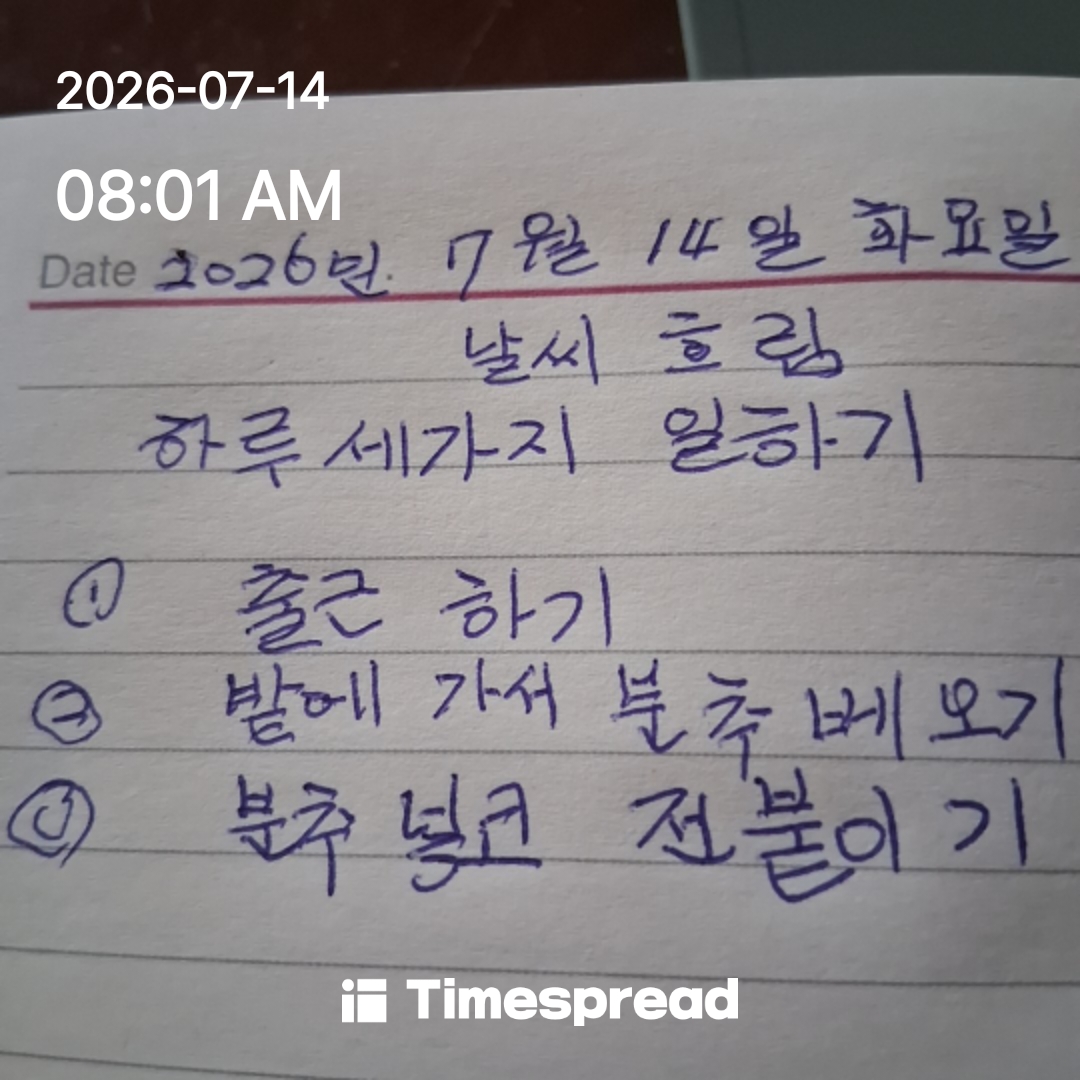 2026-07-14
08:01 AM
Date 2026년. 7월 14일 화요일
날씨 흐림
하루 세가지 일하기
① 출근 하기
② 밭에 가서 분추 베오기
③ 분추 넣코 전붙이기
Timespread